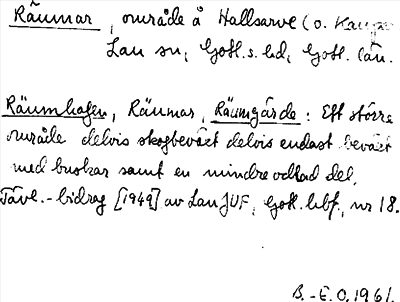 Räumar, område å Hallsarve (o.
Lau sn, Gotl. s. hd, Gotl. län.
Räumhagen, Räumar, Räumgärde: Ett större
område delvis skogbeväxt delvis endast beväxt
med buskar samt en mindre odlad del.
Tävl.-bidrag [1949] av Lau JUF, Gotl. hbf., nr 18.
B.-E. O. 1961.